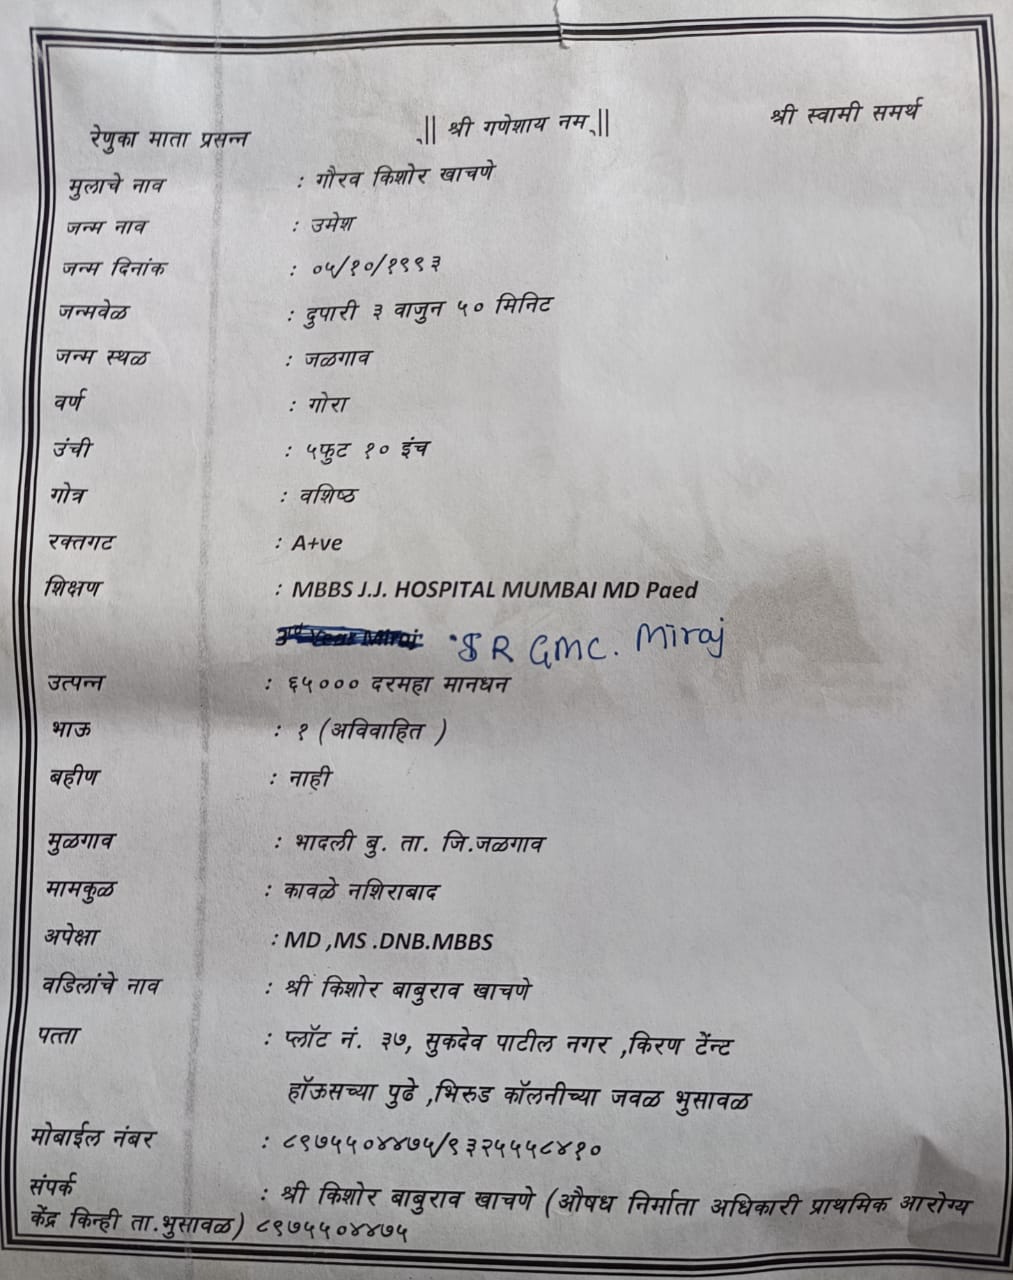 रेणुका माता प्रसन्न ॥ श्री गणेशाय नम् ॥ श्री स्वामी समर्थ
मुलाचे नाव : गौरव किशोर खाचणे
जन्म नाव : उमेश
जन्म दिनांक : ०५/१०/१९९३
जन्मवेळ : दुपारी ३ वाजुन ५० मिनिट
जन्म स्थळ : जळगाव
वर्ण : गोरा
उंची : ५फुट १० इंच
गोत्र : वशिष्ठ
रक्तगट : A+ve
शिक्षण : MBBS J.J. HOSPITAL MUMBAI MD Paed
3rd Year Miraj SR GMC. Miraj
उत्पन्न : ६५००० दरमहा मानधन
भाऊ : १ (अविवाहित )
बहीण : नाही
मुळगाव : भादली बु. ता. जि.जळगाव
मामकुळ : कावळे नशिराबाद
अपेक्षा : MD ,MS .DNB.MBBS
वडिलांचे नाव : श्री किशोर बाबुराव खाचणे
पत्ता : प्लॉट नं. ३७, सुकदेव पाटील नगर ,किरण टेंन्ट
हॉऊसच्या पुढे ,भिरुड कॉलनीच्या जवळ भुसावळ
मोबाईल नंबर : ८९७५५०४४७५/९३२५५५८४१०
संपर्क : श्री किशोर बाबुराव खाचणे (औषध निर्माता अधिकारी प्राथमिक आरोग्य
केंद्र किन्ही ता.भुसावळ) ८९७५५०४४७५